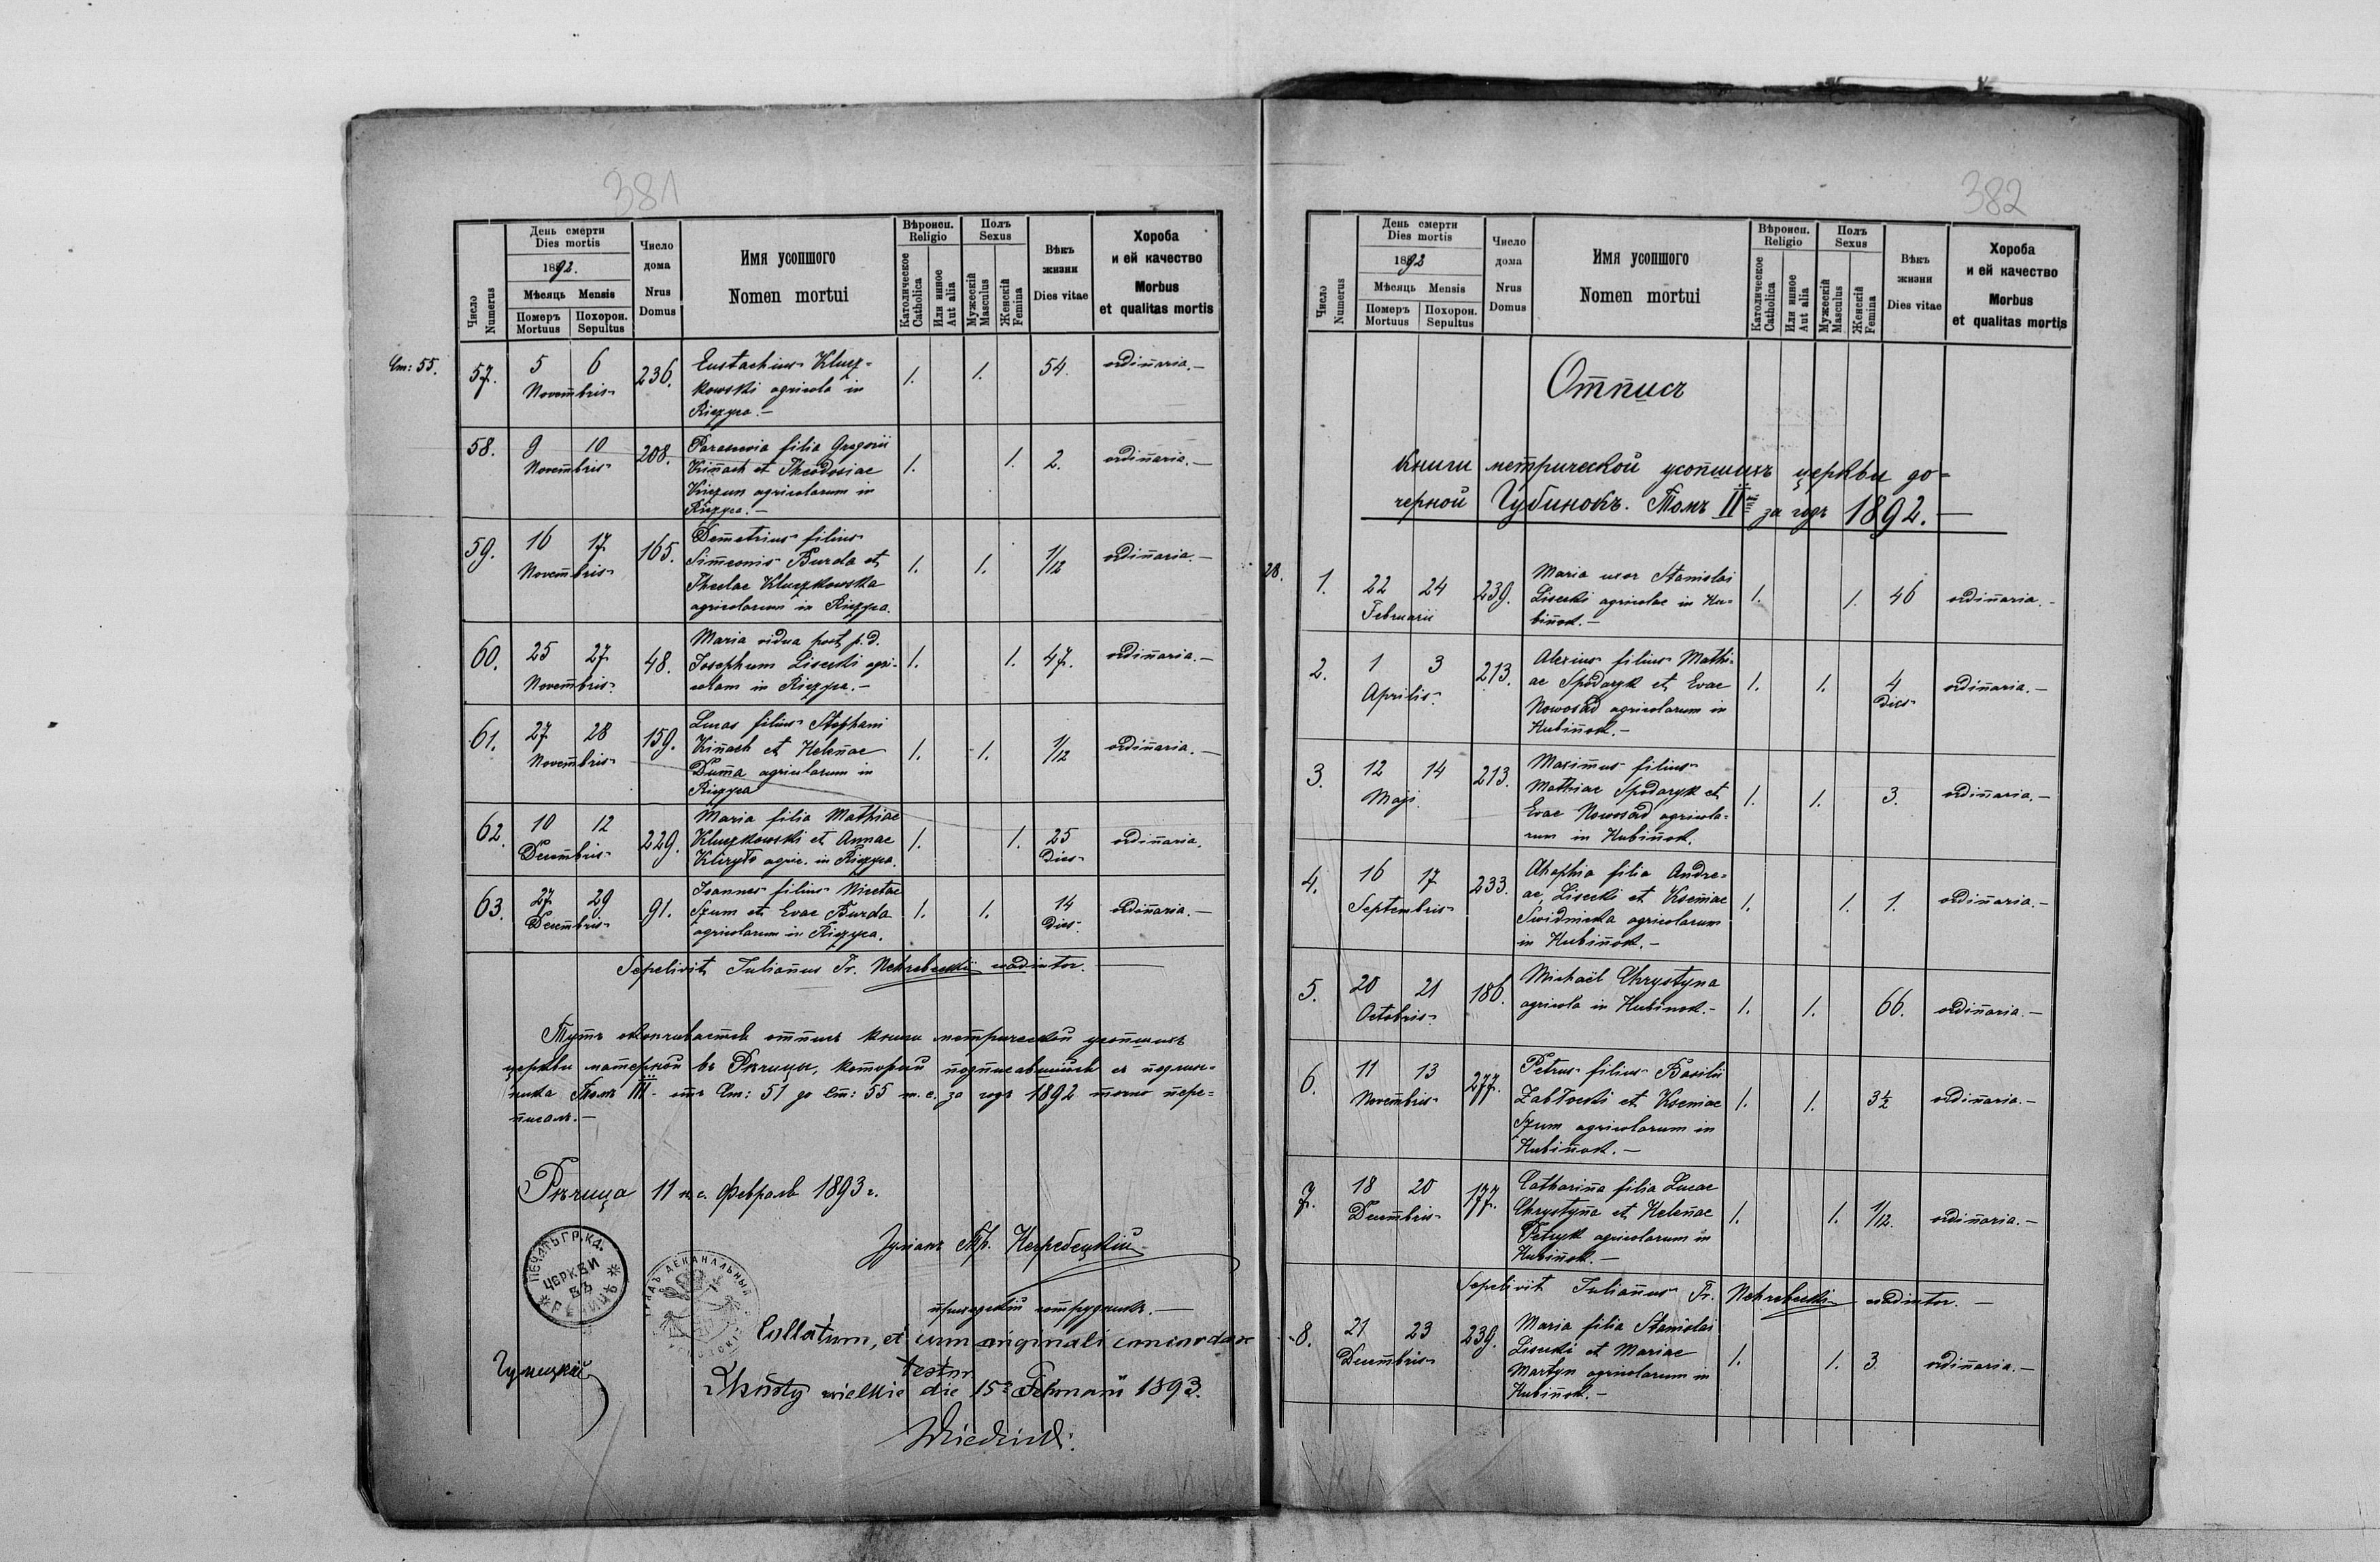 381
День смерти
Dies mortis
1892.
Мѣсяць Mensis
Число
Numerus
Померъ
Mortuus
Похорон.
Sepultus
Число
дома
Nrus
Domus
Имя усопшого
Nomen mortui
Вѣроисп.
Religio
Католическое
Catholica
Или инное
Aut alia
Полъ
Sexus
Мужескій
Masculus
Женскій
Femina
Вѣкъ
жизни
Dies vitae
Хороба
и ей качество
Morbus
et qualitas mortis
Ст: 55.
57. 5 6 236. Eustachius Klucz- 1. 1. 54. ordinaria.—
Novembris kowski agricola in
Rieczyca.—
58. 9 10 208. Parascevia filia Gregorii 1. 1. 2. ordinaria.—
Novembris Kinach et Theodosiae
agricolarum in
Rieczyca.—
59. 16 17 165. Demetrius filius 1. 1. 1/12 ordinaria.—
Novembris Simeonis Burda et
Theclae Kluczkowska
agricolarum in Rieczyca.
60. 25 27 48. Maria vidua post p. d. 1. 1. 47. ordinaria.—
Novembris Josephum Lisecki agri-
colam in Rieczyca.—
61. 27 28 159. Lucas filius Stephani 1. 1. 1/12 ordinaria.—
Novembris Kinach et Helenae
Duma agricolarum in
Rieczyca
62. 10 12 229. Maria filia Mathiae 1. 1. 25 ordinaria.
Decembris Kluczkowski et Annae Dies
Kiryło agric. in Rieczyca.
63. 27 29 91. Joannes filius Nicetae 1. 1. 14 ordinaria.—
Decembris Szum et Evae Burda Dies
agricolarum in Rieczyca.
Sepelivit Julianus Tr. Nehrebecki coadiutor.—
Тутъ оканчивается отписъ книги метрической усопшихъ
церкви матерной въ Рѣчицы, который подписавшійся съ подлин-
ника Томъ III. отъ Ст: 51 до Ст: 55 за годъ 1892 точно пере-
писалъ.—
Рѣчица 11 н. с. Февраля 1893 г.
Юліанъ Тр. Негребецкій
приходскій сотрудникъ.—
ПЕЧАТЬ ГР. КА.
ЦЕРКВИ
ВЪ
ДЕКАНАЛЬНЫЙ
Collatum, et cum originali concordare
testor
wielkie die 15ª Februarii 1893.
382
День смерти
Dies mortis
1892
Мѣсяць Mensis
Число
Numerus
Померъ
Mortuus
Похорон.
Sepultus
Число
дома
Nrus
Domus
Имя усопшого
Nomen mortui
Вѣроисп.
Religio
Католическое
Catholica
Или инное
Aut alia
Полъ
Sexus
Мужескій
Masculus
Женскій
Femina
Вѣкъ
жизни
Dies vitae
Хороба
и ей качество
Morbus
et qualitas mortis
Отписъ
книги метрической усопшихъ церкви до-
черной Губинокъ. Томъ II за годъ 1892.—
28.
1. 22 24 239. Maria uxor Stanislai 1. 1. 46 ordinaria.
Februarii Lisecki agricolae in Hu-
binok.—
2. 1 3 213. Alexius filius Mathi- 1. 1. 4 ordinaria.—
Aprilis ae Spodaryk et Evae Dies
Nowosad agricolarum in
Hubinok.—
3. 12 14 213. Maximus filius 1. 1. 3. ordinaria.—
Maji. Mathiae Spodaryk et
Evae Nowosad agricola-
rum in Hubinok.
4. 16 17 233. Ahaphia filia Andre- 1. 1. 1. ordinaria.—
Septembris ae Lisecki et Kseniae
Swidnicka agricolarum
in Hubinok.—
5. 20 21 186. Michaël Chrystyna 1. 1. 66. ordinaria.—
Octobris agricola in Hubinok.—
6. 11 13 277. Petrus filius Basilii 1. 1. 3½ ordinaria.—
Novembris Zabłocki et Kseniae
Szum agricolarum in
Hubinok.—
7. 18 20 177. Catharina filia Lucae 1. 1. 1/12. ordinaria.—
Decembris Chrystyna et Helenae
Petryk agricolarum in
Hubinok.—
Sepelivit Julianus Tr. Nehrebecki coadiutor.—
8. 21 23 239. Maria filia Stanislai 1. 1. 3 ordinaria.—
Decembris Lisecki et Mariae
Martyn agricolarum in
Hubinok.—